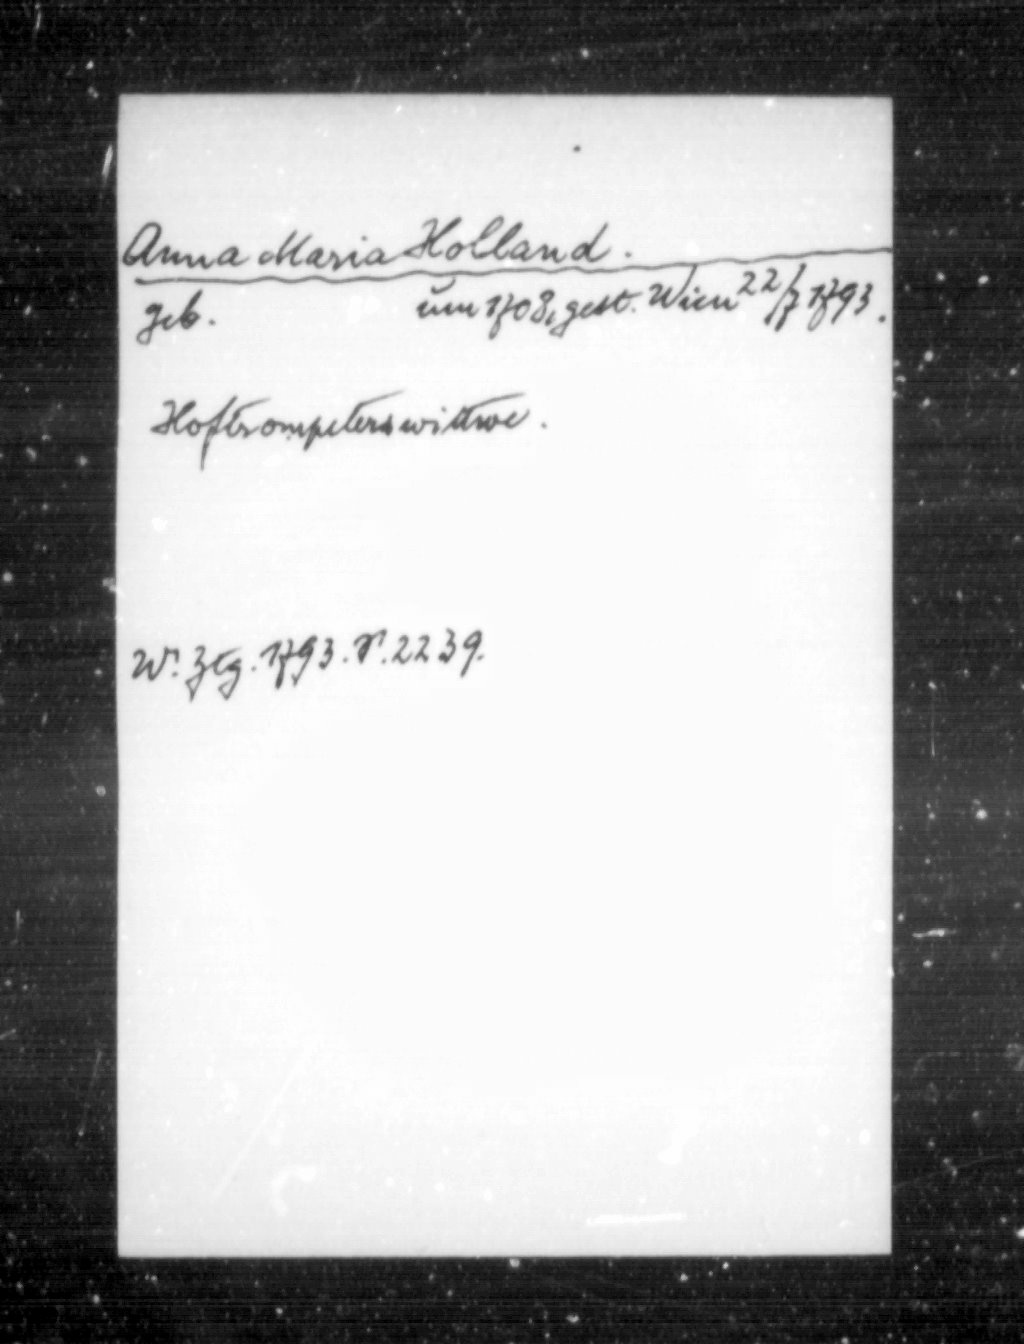 Anna Maria Holland.
geb. um 1708, gest. Wien 22/7 1793.
Hoftrompeterswittwe.
W. Ztg. 1793. S. 2239.